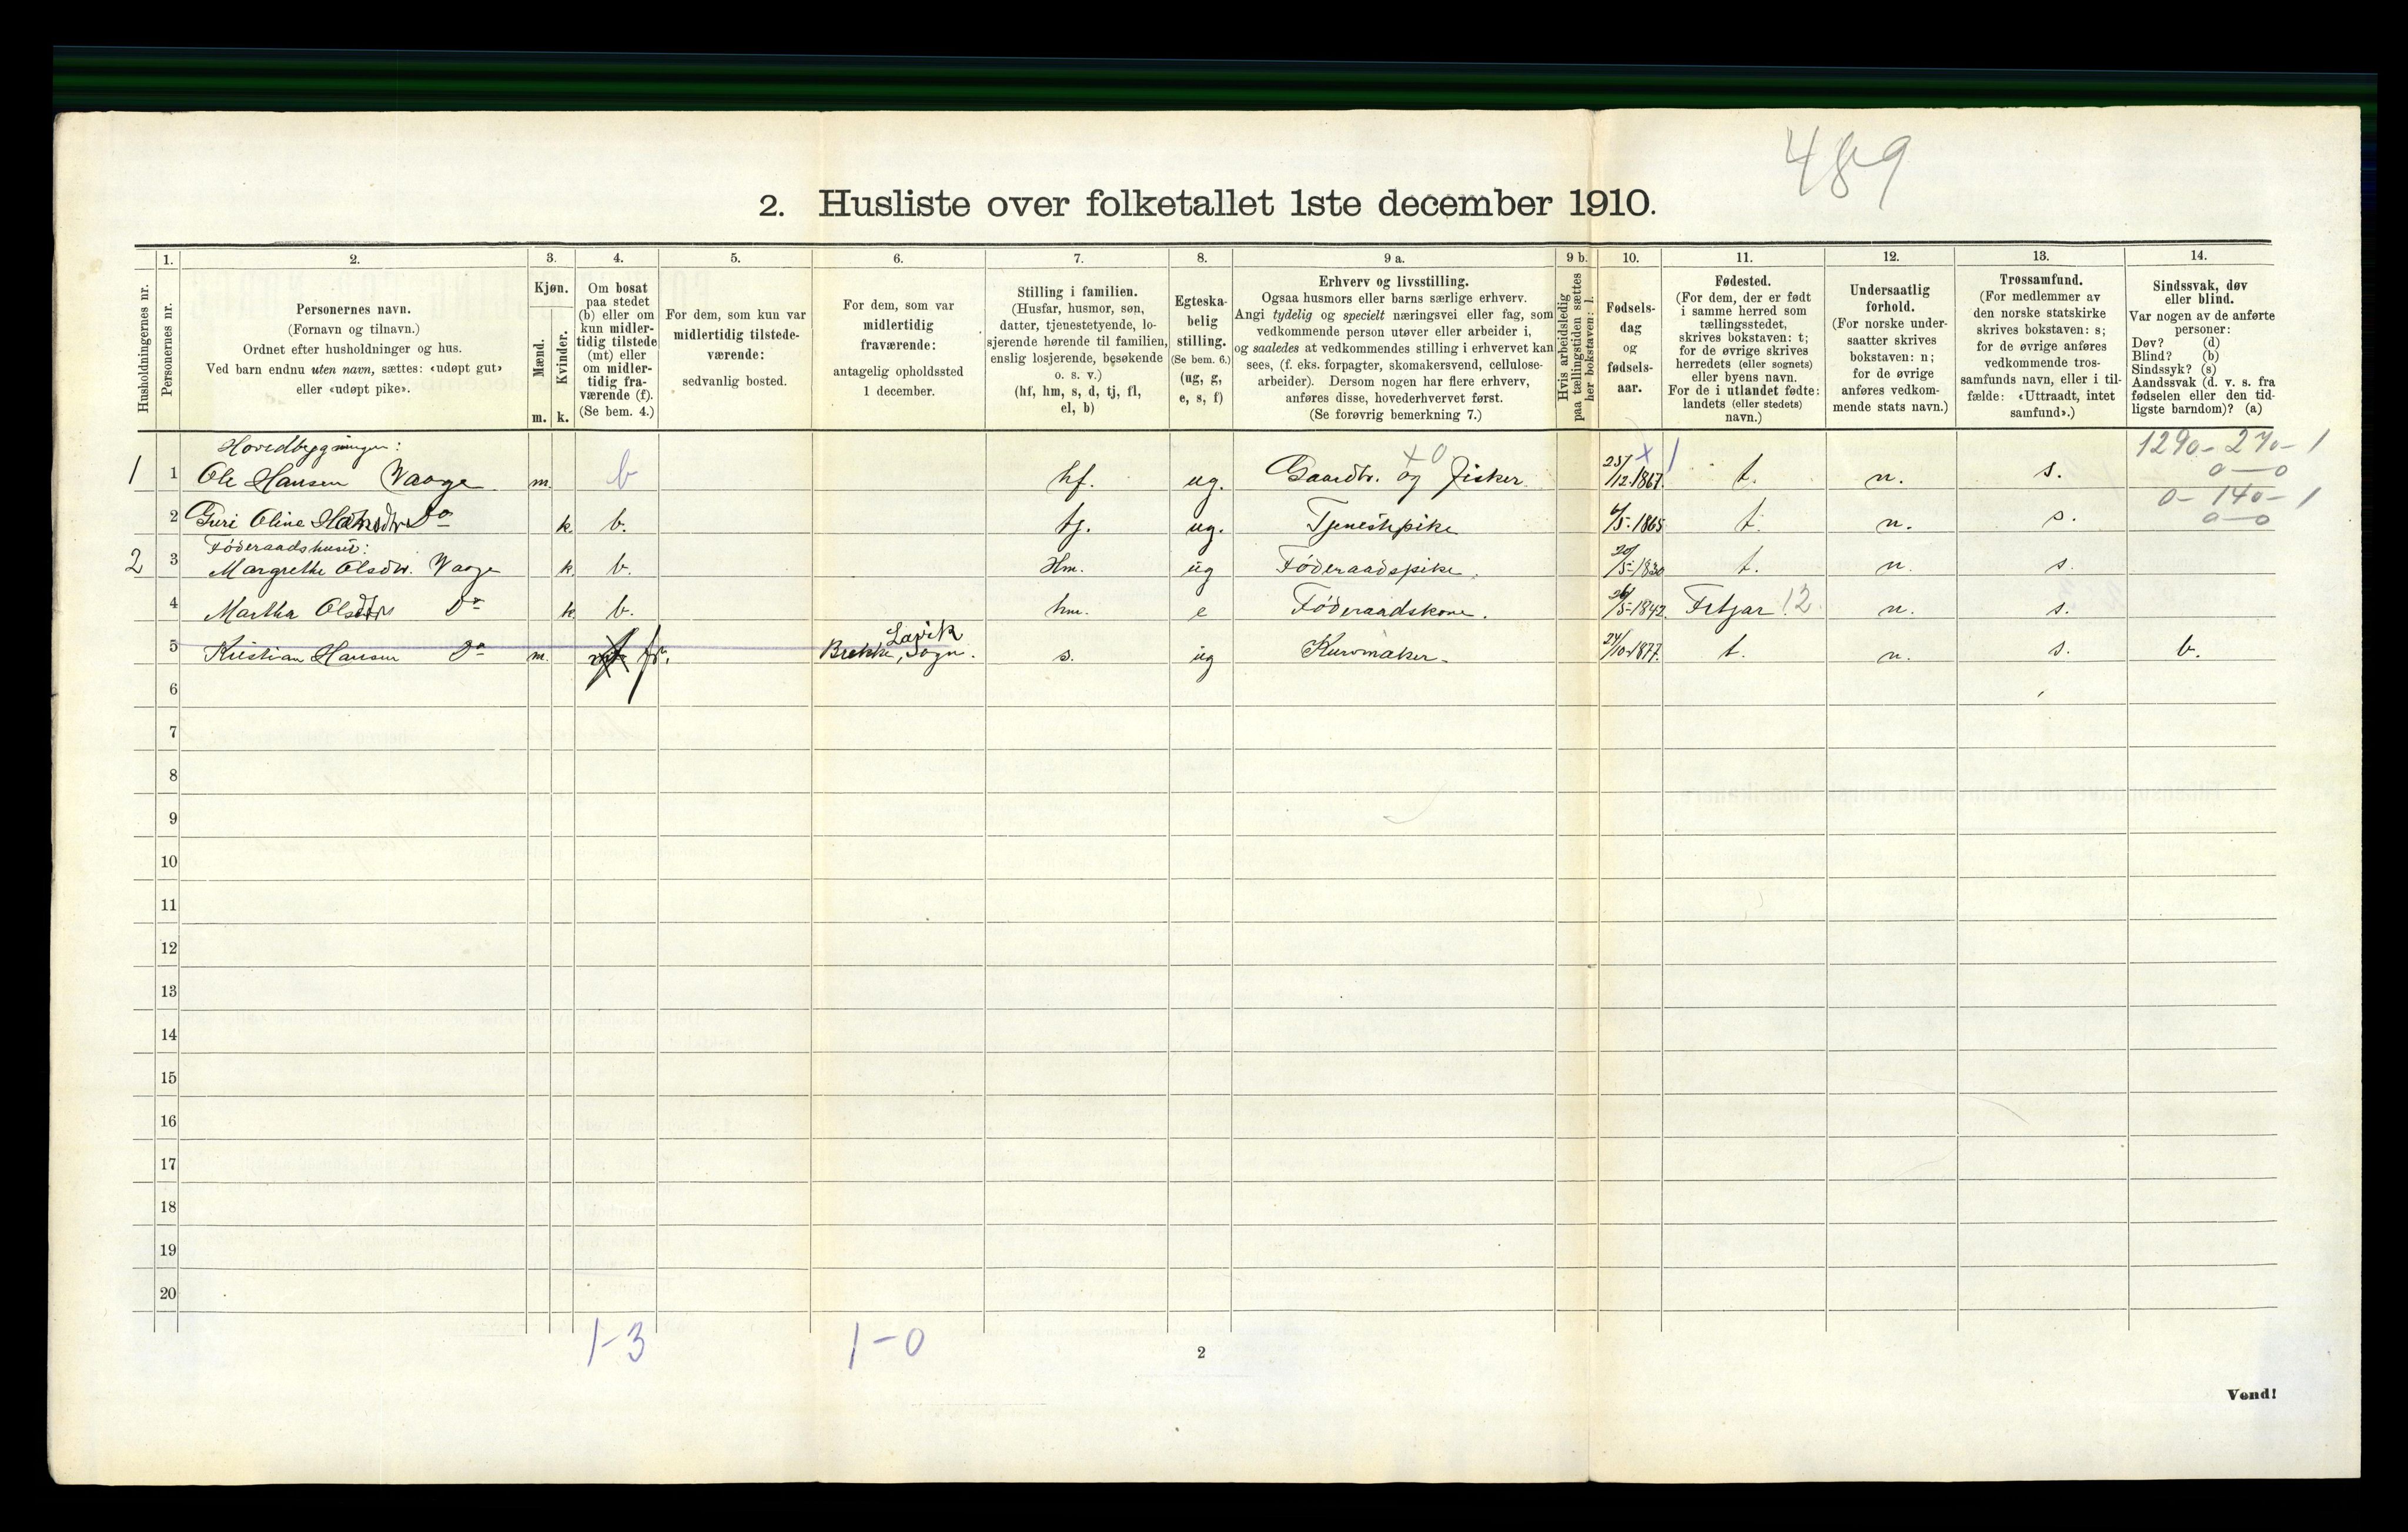 489
2. Husliste over folketallet 1ste december 1910.
1. 2. 3. 4. 5. 6. 7. 8. 9 a. 9 b. 10. 11. 12. 13. 14.
Husholdningernes nr.
Personernes nr.
Personernes navn.
(Fornavn og tilnavn.)
Ordnet efter husholdninger og hus.
Ved barn endnu uten navn, sættes: «udøpt gut»
eller «udøpt pike».
Kjøn.
Mænd.
Kvinder.
m. k.
Om bosat
paa stedet
(b) eller om
kun midler-
tidig tilstede
(mt) eller
om midler-
tidig fra-
værende (f).
(Se bem. 4.)
For dem, som kun var
midlertidig tilstede-
værende:
sedvanlig bosted.
For dem, som var
midlertidig
fraværende:
antagelig opholdssted
1 december.
Stilling i familien.
(Husfar, husmor, søn,
datter, tjenestetyende, lo-
sjerende hørende til familien,
enslig losjerende, besøkende
o. s. v.)
(hf, hm, s, d, tj, fl,
el, b)
Egteska-
belig
stilling.
(Se bem. 6.)
(ug, g,
e, s, f)
Erhverv og livsstilling.
Ogsaa husmors eller barns særlige erhverv.
Angi tydelig og specielt næringsvei eller fag, som
vedkommende person utøver eller arbeider i,
og saaledes at vedkommendes stilling i erhvervet kan
sees, (f. eks. forpagter, skomakersvend, cellulose-
arbeider). Dersom nogen har flere erhverv,
anføres disse, hovederhvervet først.
(Se forøvrig bemerkning 7.)
Hvis arbeidsledig
paa tællingstiden sættes
her bokstaven: l.
Fødsels-
dag
og
fødsels-
aar.
Fødested.
(For dem, der er født
i samme herred som
tællingsstedet,
skrives bokstaven: t;
for de øvrige skrives
herredets (eller sognets)
eller byens navn.
For de i utlandet fødte:
landets (eller stedets)
navn.)
Undersaatlig
forhold.
(For norske under-
saatter skrives
bokstaven: n;
for de øvrige
anføres vedkom-
mende stats navn.)
Trossamfund.
(For medlemmer av
den norske statskirke
skrives bokstaven: s;
for de øvrige anføres
vedkommende tros-
samfunds navn, eller i til-
fælde: «Uttraadt, intet
samfund».)
Sindssvak, døv
eller blind.
Var nogen av de anførte
personer:
Døv? (d)
Blind? (b)
Sindssyk? (s)
Aandssvak (d. v. s. fra
fødselen eller den tid-
ligste barndom)? (a)
Hovedbygningen: x0 x 1 1290-270-1
1 1 Ole Hansen Vaage m. b hf. ug. Gaardbr. og fisker 25/12.1867. t. n. s. 0-0
0-140-1
2 Guri Oline Hansdtr Do k. b. tj. ug. Tjenestpike 6/5-1865 t. n. s. 0-0
Føderaadshuset:
2 3 Margrethe Olsdtr. Vaage k. b. Hm. ug Føderaadspike. 20/5-1830 t. n. s.
4 Martha Olsdtr Do k b. hm. e Føderaadskone. 26/5-1842. Fitjar 12 n. s.
Lavik
5 Kristian Hansen Do m. fr. Brekke, Sogn. s. ug Kurvmaker. 24/10-1877. t. n. s. b.
6
7
8
9
10
11
12
13
14
15
16
17
18
19
20
1-3 1-0
2
Vend!